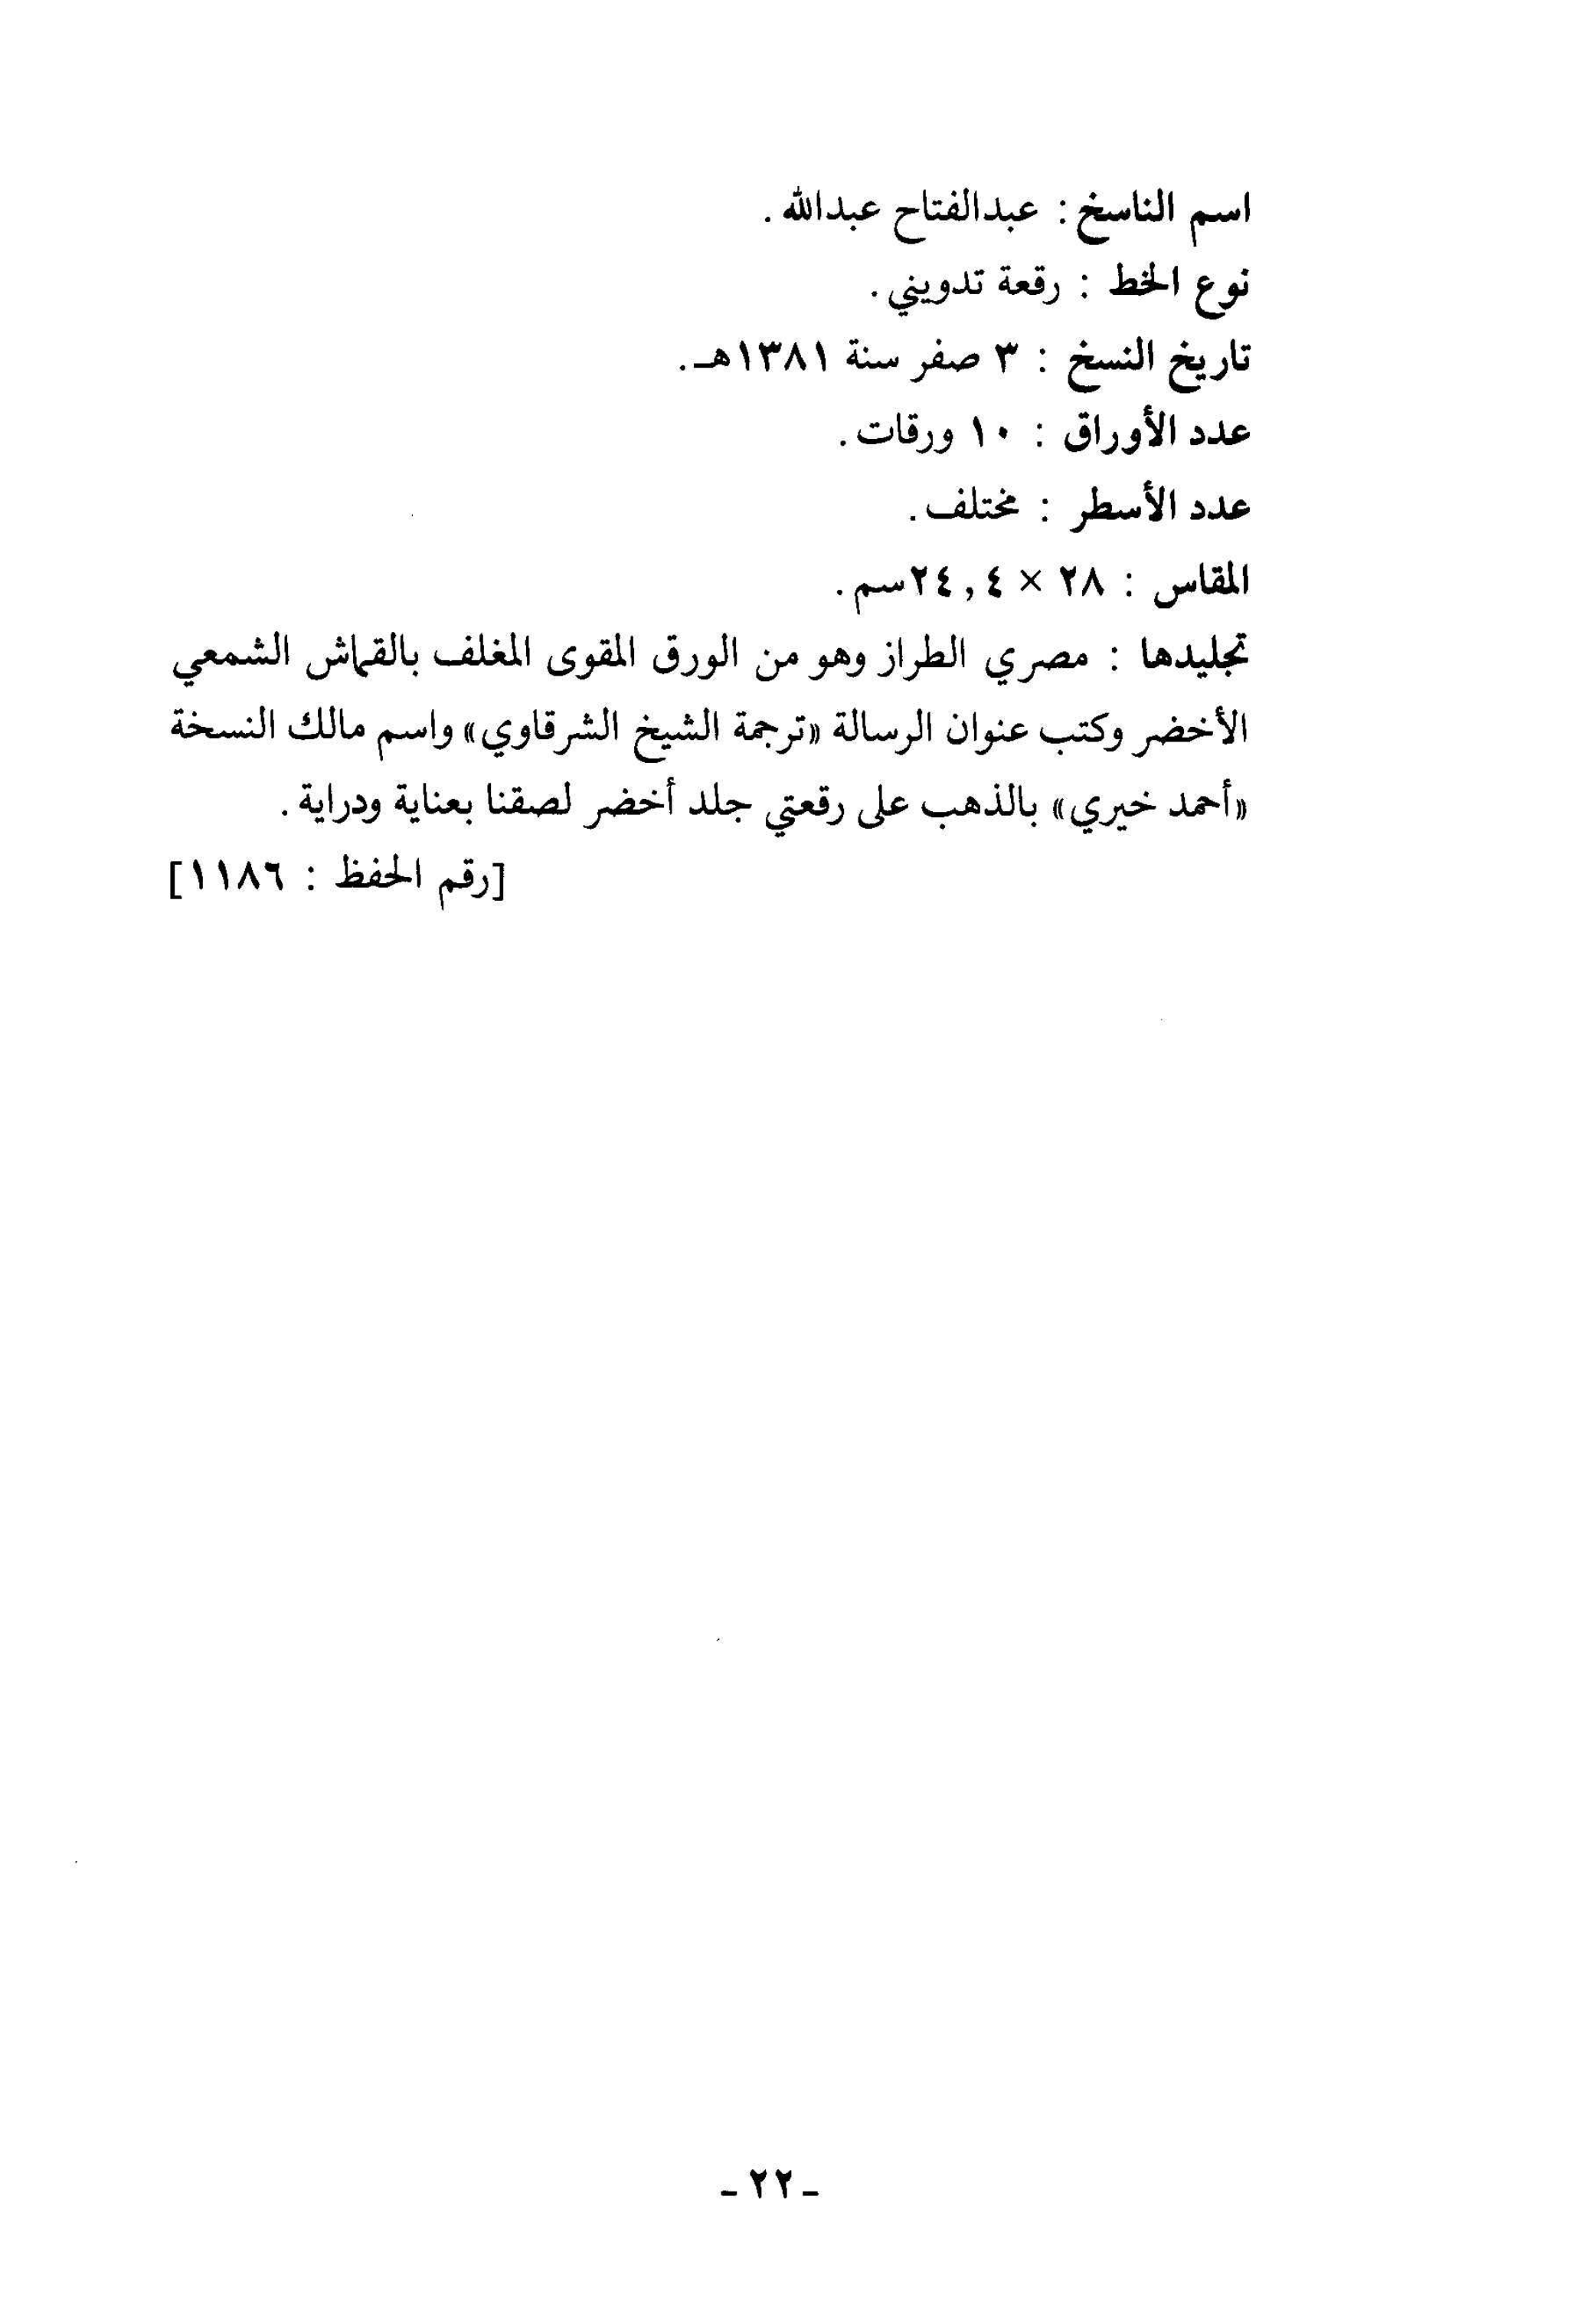 اسم الناسخ : عبدالفتاح عبدالله .
نوع الخط : رقعة تدويني .
تاريخ النسخ : ٣ صفر سنة ١٣٨١هـ .
عدد الأوراق : ١٠ ورقات .
عدد الأسطر : مختلف .
المقاس : ٢٨ × ٢٤,٤سم .
تجليدها : مصري الطراز وهو من الورق المقوى المغلف بالقماش الشمعي
الأخضر وكتب عنوان الرسالة «ترجمة الشيخ الشرقاوي» واسم مالك النسخة
«أحمد خيري» بالذهب على رقعتي جلد أخضر لصقنا بعناية ودراية .
[رقم الحفظ : ١١٨٦]
- ٢٢ -